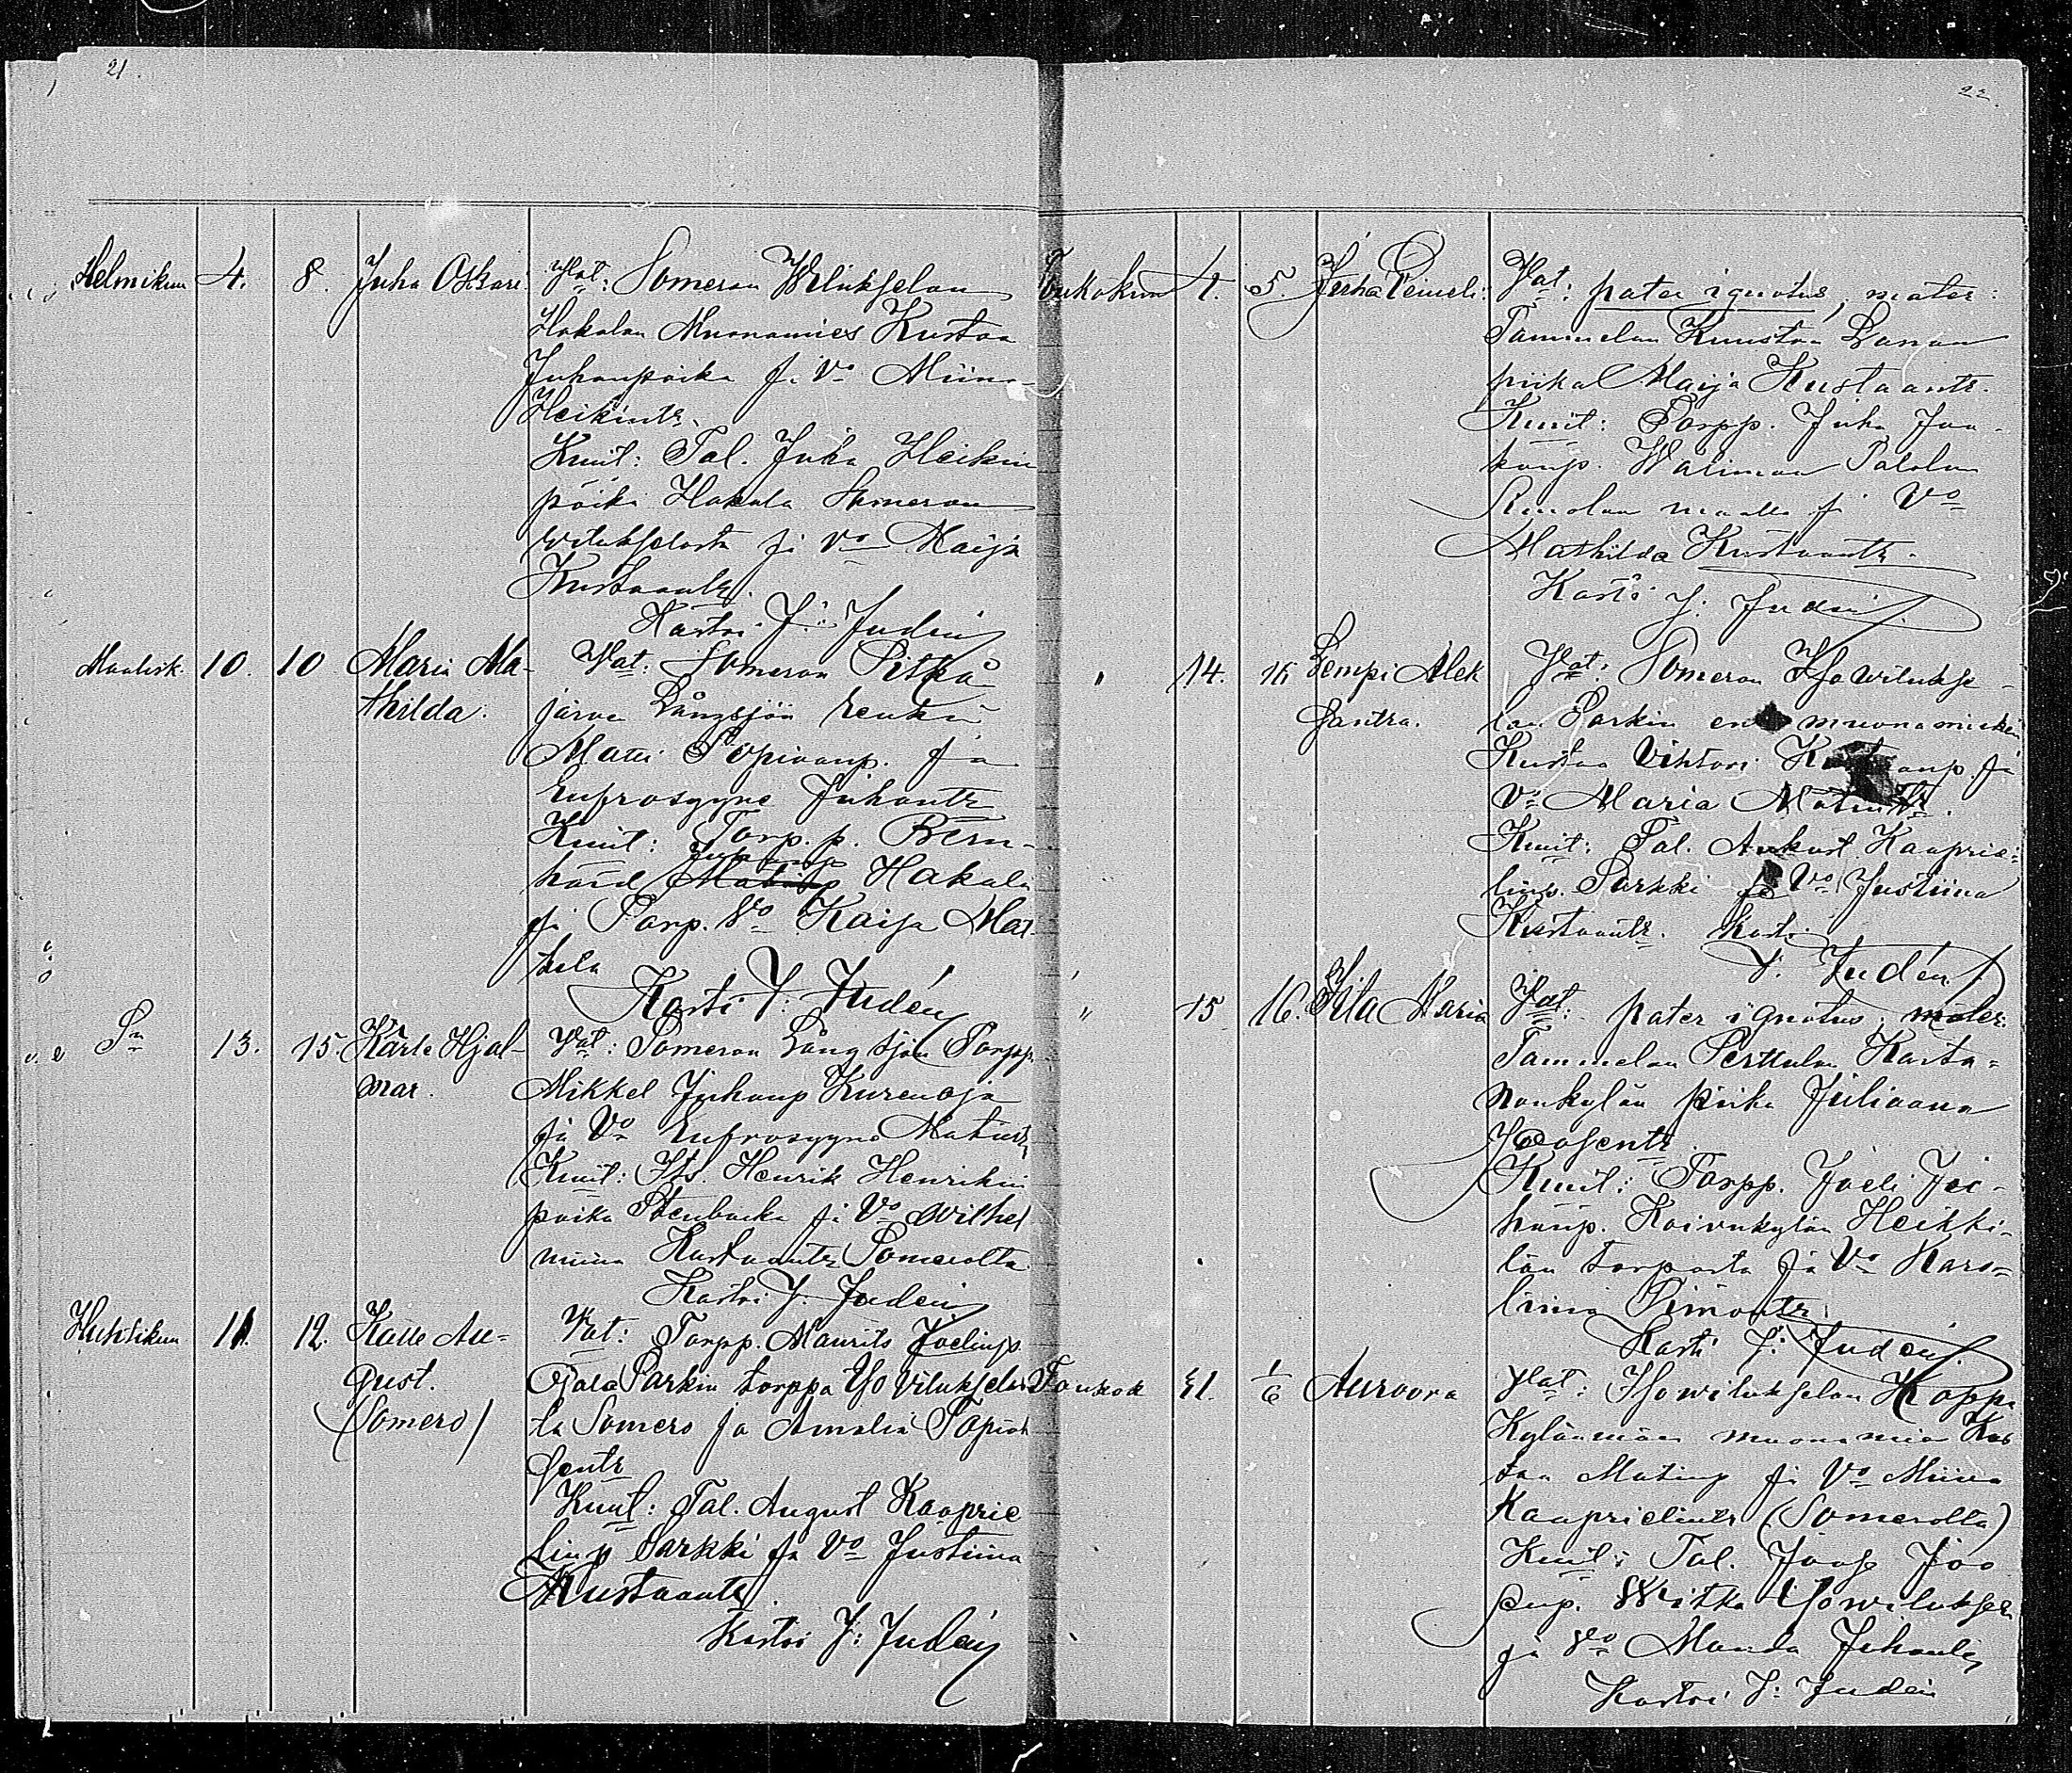 21.
Helmikuu 4. 8. Juha Oskari. Vat: Someron Wilukselan
Hakalan Muonamies Kustaa
Juhanpoika ja Vo Miina
Heikintr.
Kuit: Tal. Juha Heikin
poika Hakala Someron
Wilukselasta ja Vo Maija
Kustaantr.
Kastoi J: Judén
Maalisk. 10. 10 Maria Ma-
thilda. Vat: Someron Pitkä
järven Långsjön renki
Matti Topiaanp. ja
Eufrosyyne Juhantr
Kuit: Torp. p. Bern-
hard Hakala
ja Torp. Vo Kaisa Mat-
tila
Kasti J: Judén
Sn 13. 15. Karle Hjal-
mar. Vat: Someron Långsjön Torpp.
Mikkel Juhanp Kurenoja
ja Vo Eufrosyyne Matintr
Kuit: Its. Henrik Henrikin
poika Stenbacka ja Vo Wilhel
miina Kustaantr Somerolta.
Kastoi J. Judén
Huhtikuu 11. 12. Kalle Au-
gust.
(Somero) Vat: Torpp. Maurits Joelinp.
Ojala Parkin torppa Iso Vilukselas
ta Somero ja Amalia Topiak
sentr
Kuit: Tal. August Kaaprie
linp Sarkki ja Vo Justiina
Kustaantr.
Kastoi J: Judén
22.
Toukokuu 4. 5. Juha Vat: pater ignotus, mater:
Tammelan Kuuston
piika Maija Kustaantr.
Kuit: Torpp. Juha Jaa
konp.
maalla ja Vo
Mathilda Kustaantr.
Kasti J: Judén
" 14. Lempi Alek
santra. Vat: Someron Iso Wilukse-
lan muonamiehen
Kustaa Vihtori ja
Vo Maria
Kuit: Tal. Aukust Kaaprie-
linp. Sarkki ja Vo Justiina
Kustaantr. Kasti
J. Judén
" 15 16. Iita Maria Vat: pater ignotus; mater:
Tammelan Perttulan Karta-
nonkylän piika Juliaana
Joosentr
Kuit: Torpp. Joeli
Koivukylän Heikki-
län torpasta ja Vo Karo-
liina Simontr.
Kasti J: Judén.
Toukok 31. 1/6 Auroora Vat: Isowilukselan
Kylänmään muonamies Kus
taa Matinp ja Vo Miina
Kaaprielintr (Somerolta)
Kuit: Tal. Joose Joo
senp. Isowiluksela
ja Vo Manda Juhantr
Kastoi J: Judén